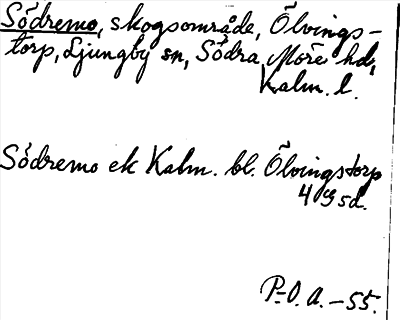 Södremo, skogsområde, Ölvings-
torp, Ljungby sn, Södra Möre hd,
Kalm. l.
Södremo ek Kalm. bl. Ölvingstorp
4 sd.
P.O.A. -55.